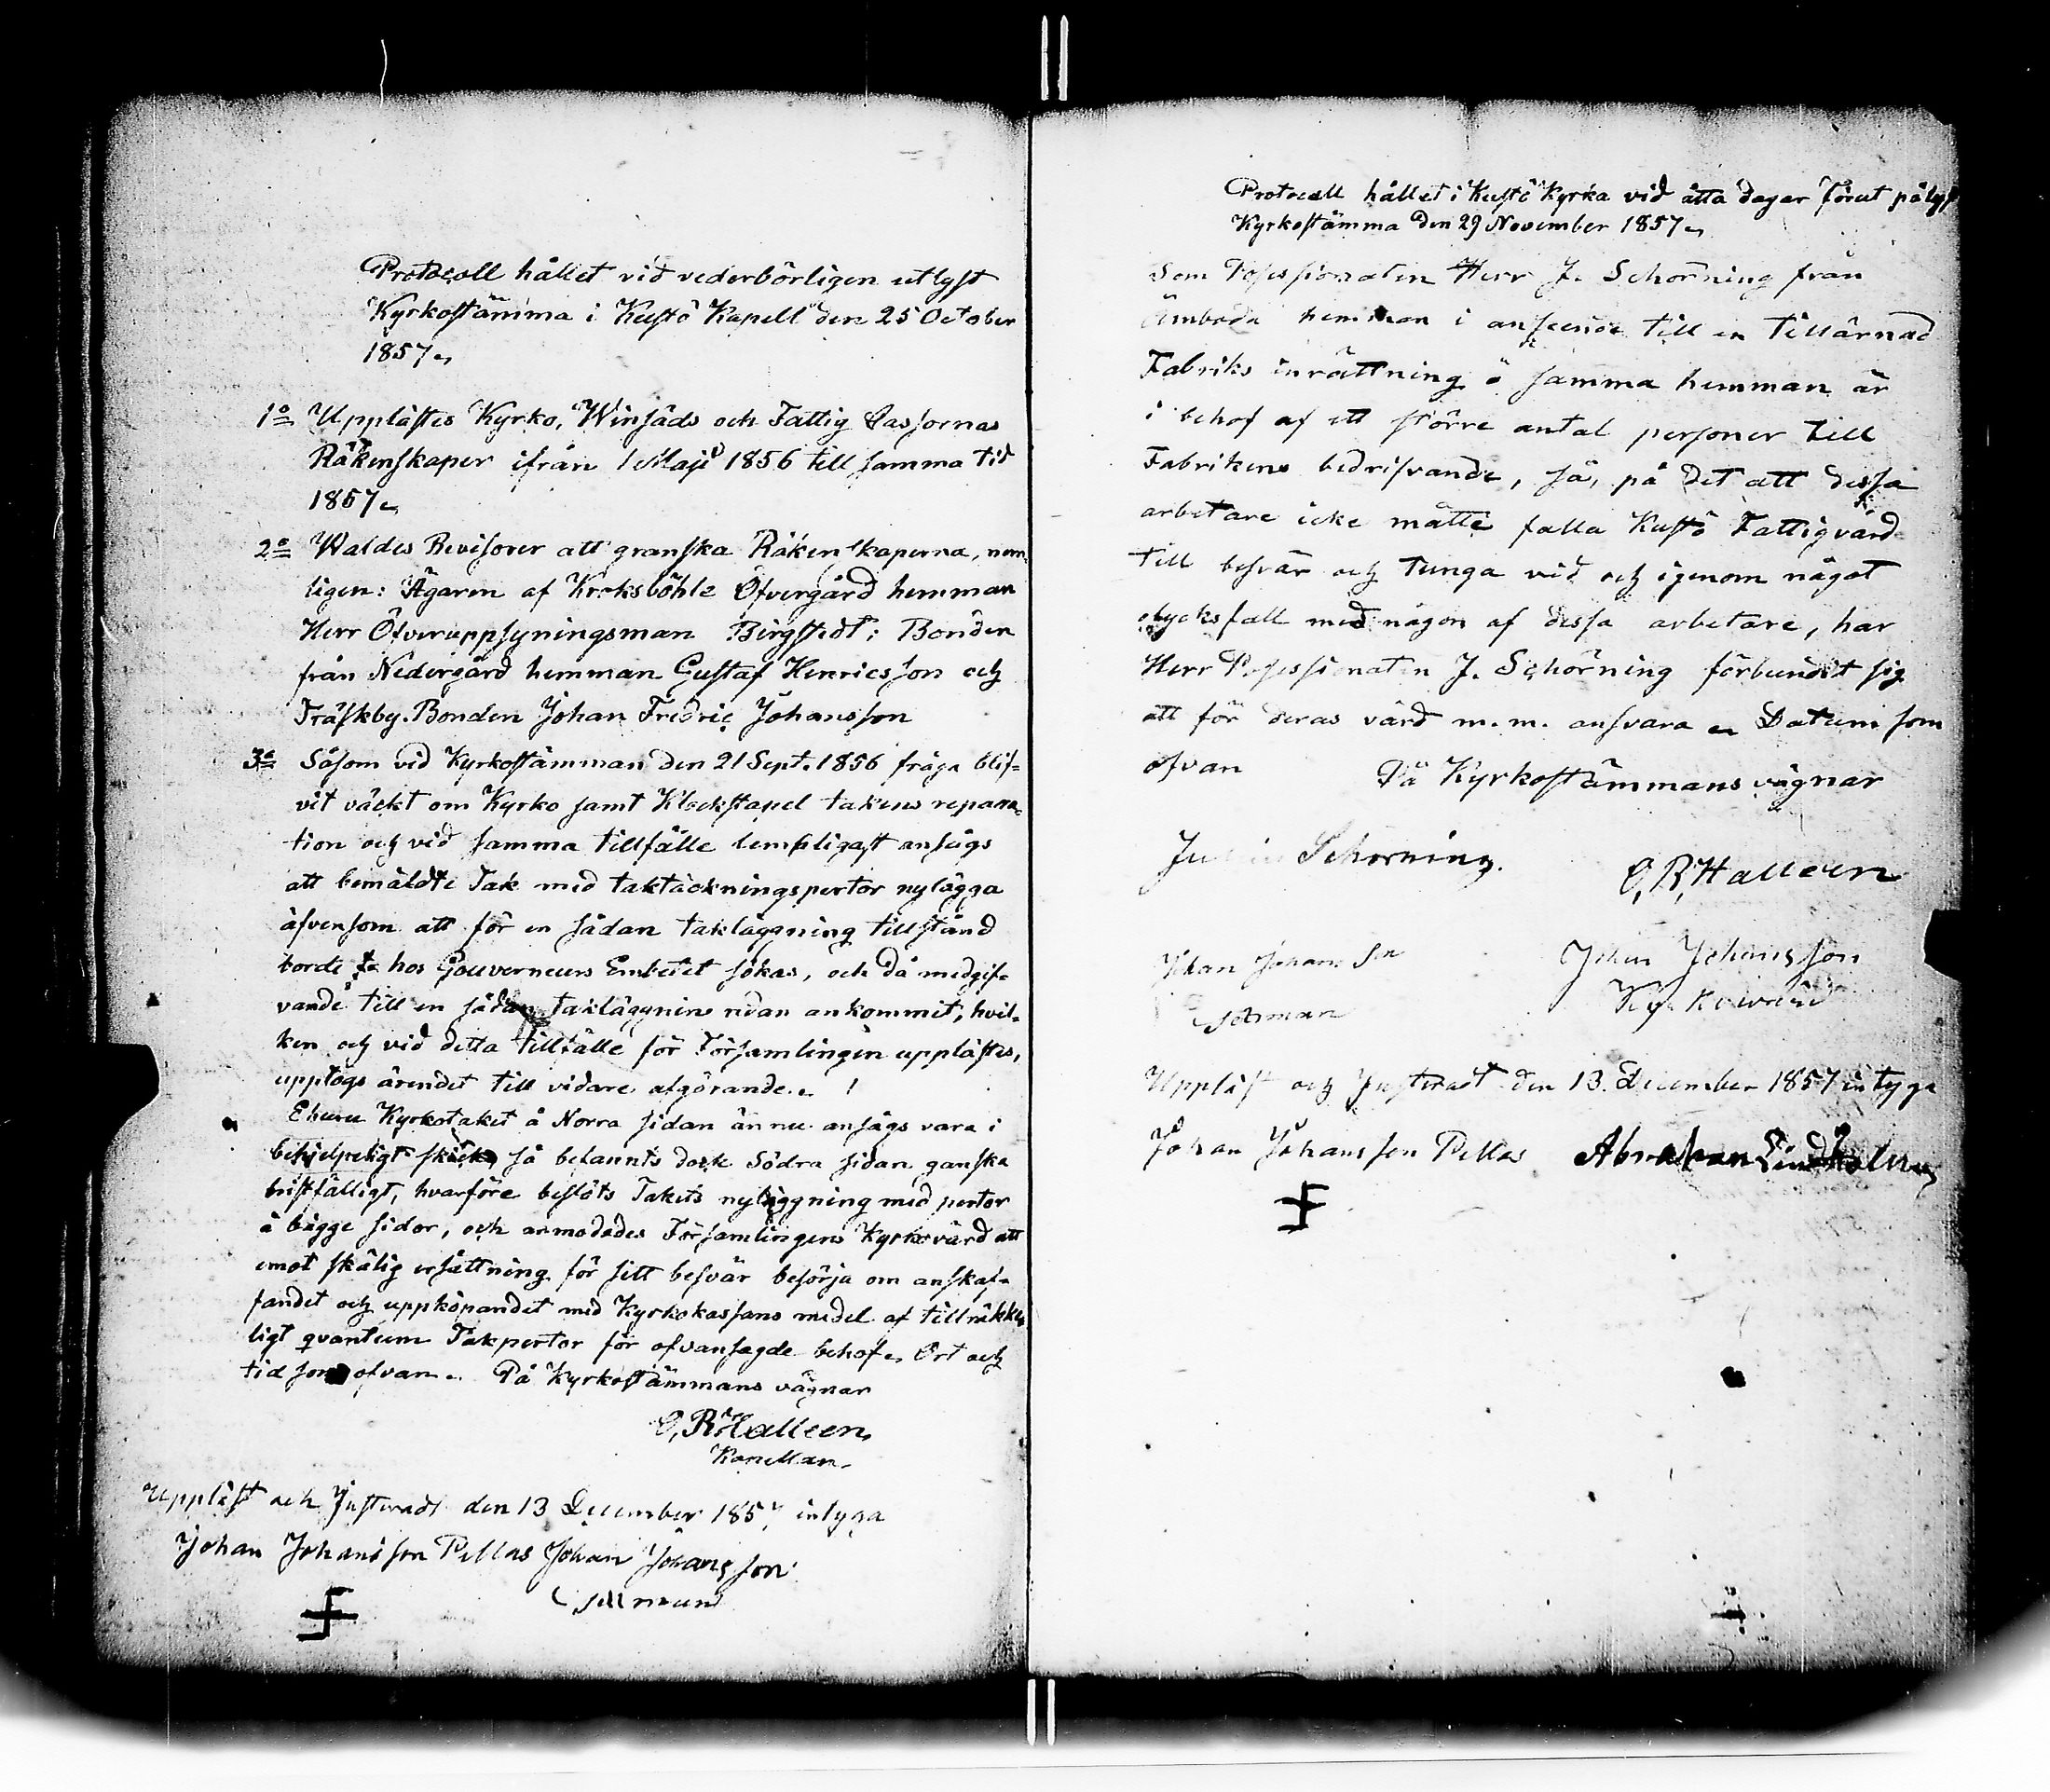 Protocoll hållet vid vederbörligen utlyst
Kyrkostämma i Kustö Kapell den 25 October
1857.
1o Upplästes Kyrko, Winsäds och Fattig Cassornas
Räkenskaper ifrån 1 Maji 1856 till samma tid
1857.
2o Waldes Revisorer att granska Räkenskaperna, nem-
ligen: Ägaren af Kroksböhle Öfvergård hemman
Herr Öfveruppsyningsman Bergstedt; Bonden
från Nedergård hemman Gustaf Henricsson och
Träskby Bonden Johan Fredric Johansson
3o Såsom vid Kyrkostämman den 21 Sept. 1856 fråga blif-
vit väckt om Kyrko samt Klockstapel takens repara-
tion och vid samma tillfälle lempligast ansågs
att bemäldte Tak med taktäckningspertor nylägga
äfvensom att för en sådan takläggning tillstånd
borde hos Gouverneurs Embetet sökas, och då medgif-
vande till en sådan takläggning redan ankommit, hvil-
ken och vid detta tillfälle för Församlingen upplästes,
upptogs ärendet till vidare afgörande.
Ehuru Kyrkotaket å Norra sidan ännu ansågs vara i
behjelpeligt skick, så befanns dock Södra sidan ganska
bristfälligt, hvarföre beslöts Takets nyläggning med pertor
å bägge sidor, och anmodades Församlingens Kyrkovärd att
emot skälig ersättning för sitt besvär besörja om anskaf-
fandet och uppköpandet med Kyrkokassans medel af tillräkke-
ligt qvantum Takpertor för ofvansagde behof. Ort och
tid som ofvan. På Kyrkostämmans vägnar
O, R, Halleen
Kapellan.
Uppläst och Justeradt den 13 December 1857 intyga
Johan Johansson Pellas Johan Johansson
Sexman
Protocoll hållet i Kustö Kyrka vid åtta dagar förut pålyst
Kyrkostämma den 29 November 1857.
Som Possessionaten Herr J. Schorning från
Ämboda hemman i anseende till en tillärnad
Fabriks inrättning å samma hemman är
i behof af ett större antal personer till
Fabrikens bedrifvande, så, på det att dessa
arbetare icke måtte falla Kustö Fattigvård
till besvär och tunga vid och igenom något
olycksfall med någon af dessa arbetare, har
Herr Possessionaten J. Schorning förbundit sig
att för deras vård m. m. ansvara. Datum som
ofvan
På Kyrkostämmans vägnar
Schorning.
O, R, Halleen
Johan Johansson
Johan Johansson
Sexman
Kyrkovärd
Uppläst och Justerat den 13. December 1857 intyga
Johan Johansson Pellas Abraham Lindholm